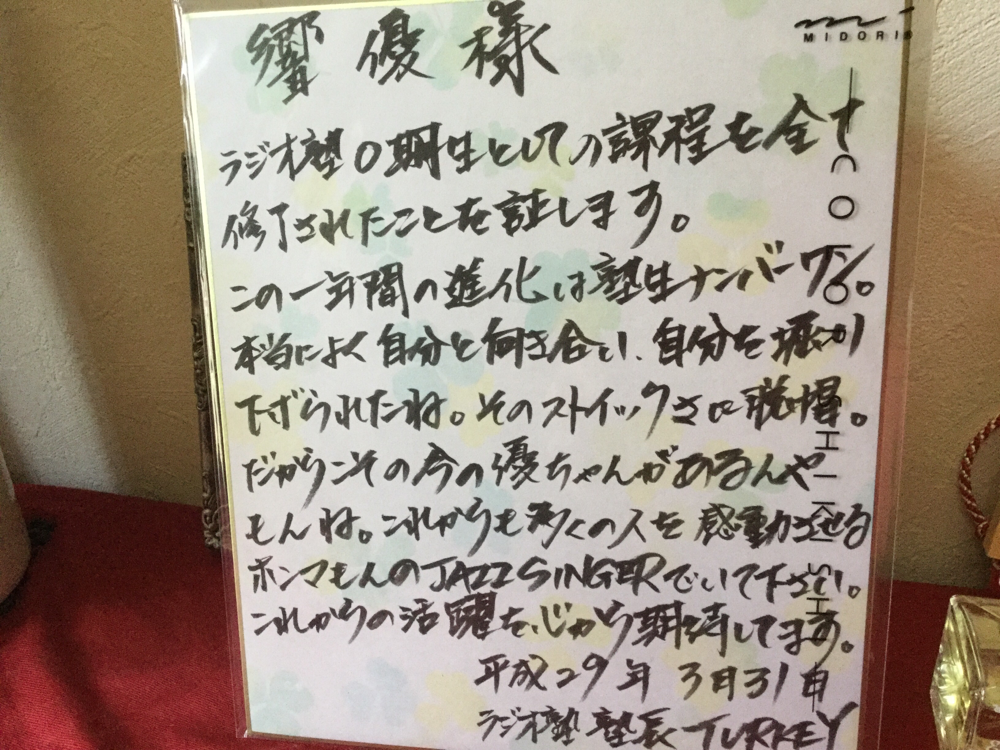 響 優 様
MIDORI
ラジオ塾0期生としての課程を全て
修了されたことを証します。
この一年間の進化は塾生ナンバーワン。
本当によく自分と向き合い、自分を堀り
下げられたね。そのストイックさに脱帽。
だからこその今の優ちゃんがあるんや
もんね。これからも多くの人を感動させる
ホンマもんのJAZZ SINGERでいて下さい。
これからの活躍を心から期待してます。
平成29年 3月31日
ラジオ塾 塾長 TURKEY